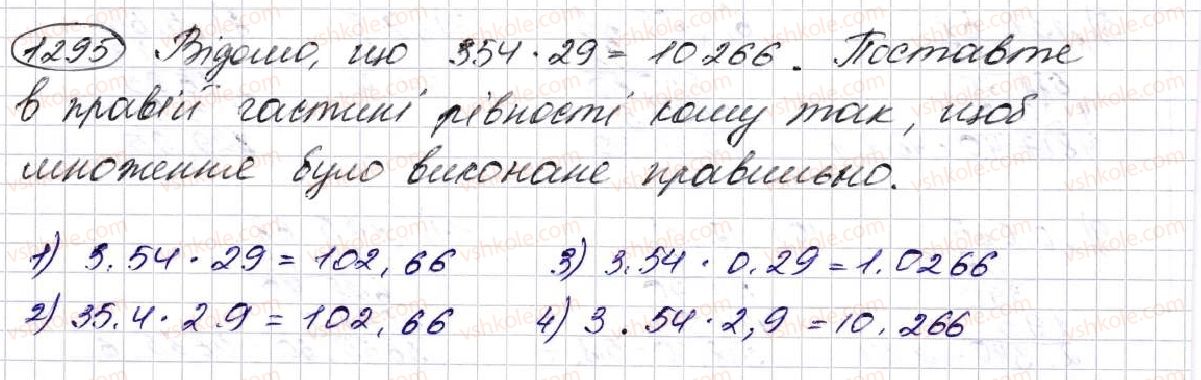 1295 Відомо, що 354 · 29 = 10266. Поставте
в правій частині рівності кому так, щоб
множення було виконане правильно.
1) 3.54 · 29 = 102,66 3) 3.54 · 0.29 = 1.0266
2) 35.4 · 2.9 = 102,66 4) 3.54 · 2,9 = 10.266